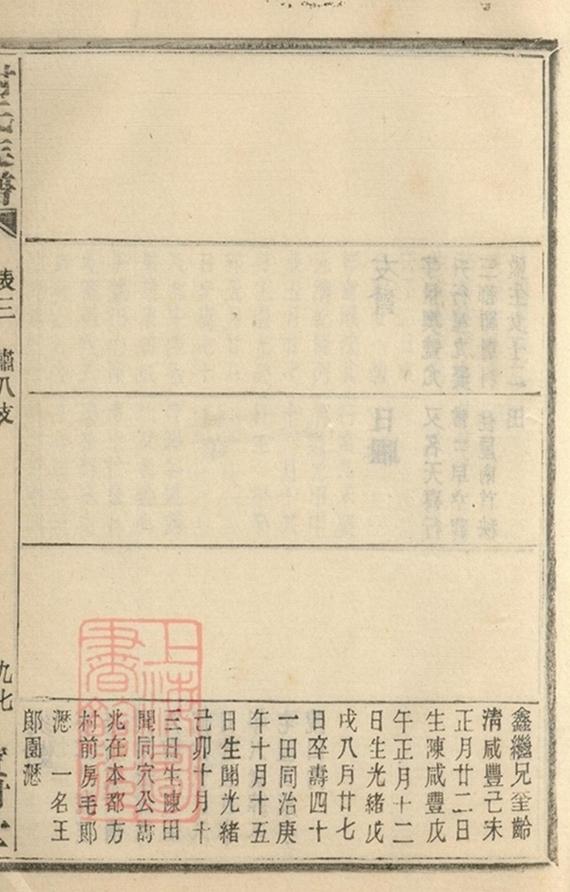 鑫繼兄奎齡
清咸豐己未
正月廿二日
生陳咸豐戊
午正月十二
日生光緒戊
戌八月廿七
日卒壽四十
一田同治庚
午十月十五
日生關光緒
己卯十月十
三日生陳田
關同穴公壽
兆在本都方
村前房毛郞
濍一名王
郞園濍
表三
八支
九七
上海圖書館藏